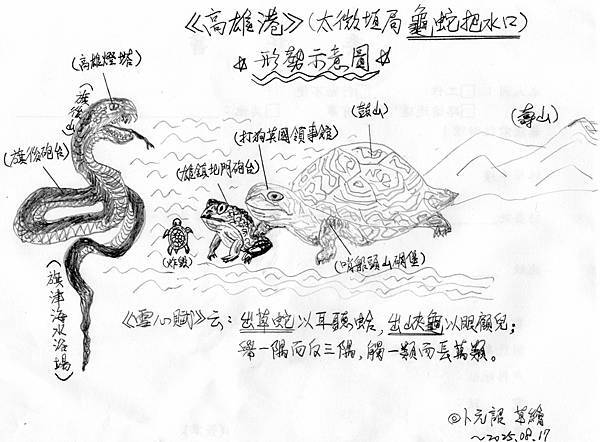 《高雄港》(太微垣局 龜蛇把水口)
形勢示意圖
(高雄燈塔)
(旗後山)
(旗後砲台)
(旗津海水浴場)
(炸毀)
(雄鎮北門砲台)
(打狗英國領事館)
(鼓山)
(壽山)
(哨船頭山碉堡)
《雪心賦》云：出草蛇以耳聽蛤，出山夾龜以眼顧兒；
舉一隅而反三隅，觸一類而長萬類。
©卜元詔 草繪
～2025.08.17